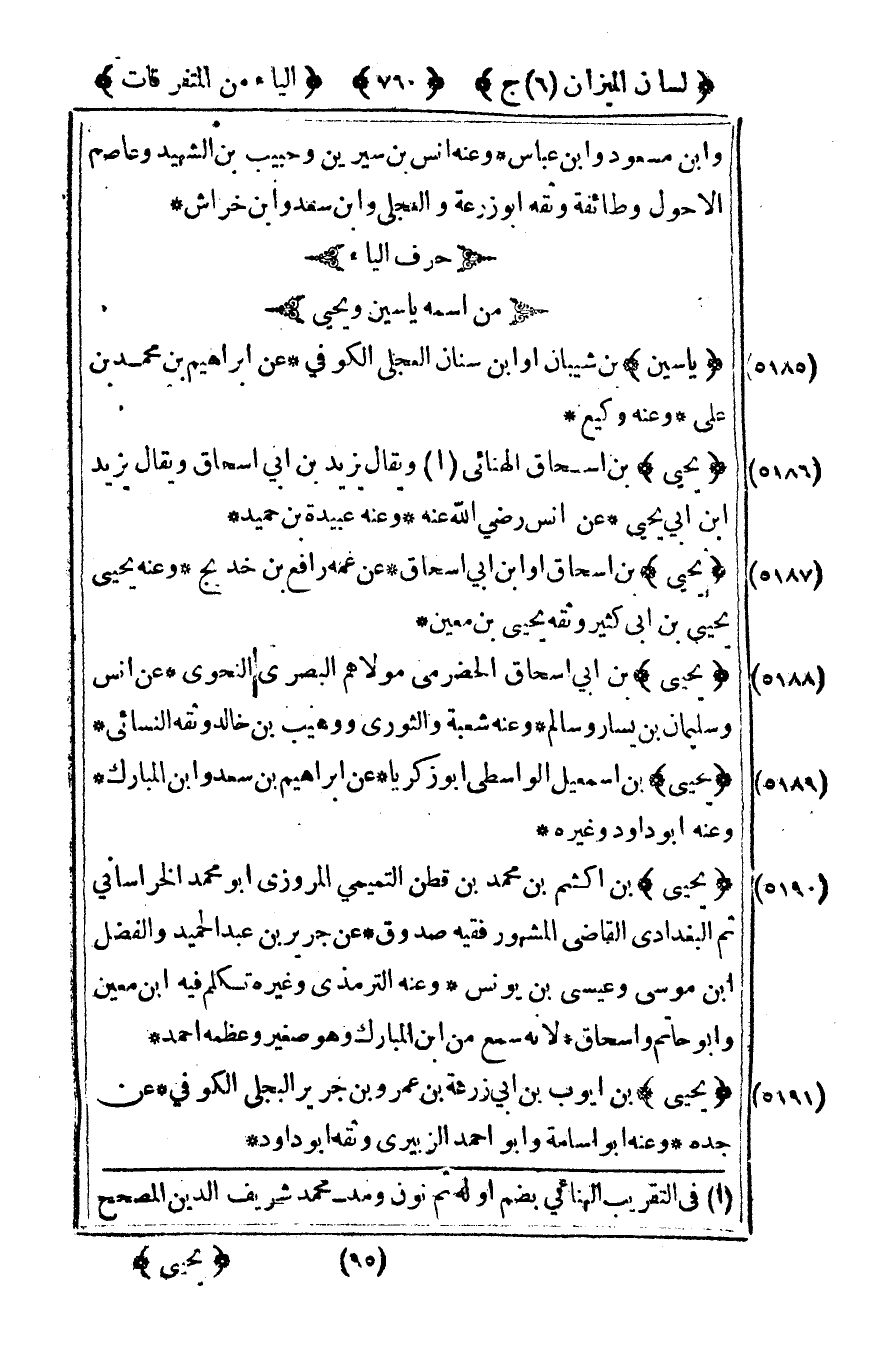 ﴿ لسان الميزان (٦) ج ﴾ ﴿ ٧٦٠ ﴾ ﴿ الياء من المتفرقات ﴾
وابن مسعود وابن عباس * وعنه انس بن سيرين وحبيب بن الشهيد وعاصم
الاحول وطائفة وثقه ابو زرعة و العجلى وابن سعد وابن خراش *
حرف الياء
من اسمه ياسين ويحيى
(٥١٨٥) ﴿ ياسين ﴾ بن شيبان او ابن سنان العجلى الكوفي * عن ابراهيم بن محمد بن
على * وعنه وكيع *
(٥١٨٦) ﴿ يحيى ﴾ بن اسحاق الهنائى (١) ويقال يزيد بن ابي اسحاق ويقال يزيد
ابن ابي يحيى * عن انس رضي الله عنه * وعنه عبيدة بن حميد *
(٥١٨٧) ﴿ يحيى ﴾ بن اسحاق او ابن ابي اسحاق * عن عمه رافع بن خديج * وعنه يحيى
يحيى بن ابى كثير وثقه يحيى بن معين *
(٥١٨٨) ﴿ يحيى ﴾ بن ابي اسحاق الحضرمى مولاهم البصرى النحوى * عن انس
وسليمان بن يسار وسالم * وعنه شعبة والثورى ووهيب بن خالد وثقه النسائى *
(٥١٨٩) ﴿ يحيى ﴾ بن اسمعيل الواسطى ابو زكريا * عن ابراهيم بن سعد وابن المبارك *
وعنه ابو داود وغيره *
(٥١٩٠) ﴿ يحيى ﴾ بن اكثم بن محمد بن قطن التميمي المروزى ابو محمد الخراساني
ثم البغدادى القاضى المشهور فقيه صدوق * عن جرير بن عبد الحميد والفضل
ابن موسى وعيسى بن يونس * وعنه الترمذى وغيره تكلم فيه ابن معين
وابو حاتم واسحاق * لانه سمع من ابن المبارك وهو صغير وعظمه احمد *
(٥١٩١) ﴿ يحيى ﴾ بن ايوب بن ابي زرعة بن عمرو بن جرير البجلى الكوفي * عن
جده * وعنه ابو اسامة وابو احمد الزبيرى وثقه ابو داود *
(١) فى التقريب الهنائي بضم اوله ثم نون ومد ـ محمد شريف الدين المصحح
(٩٥) ﴿ يحيى ﴾